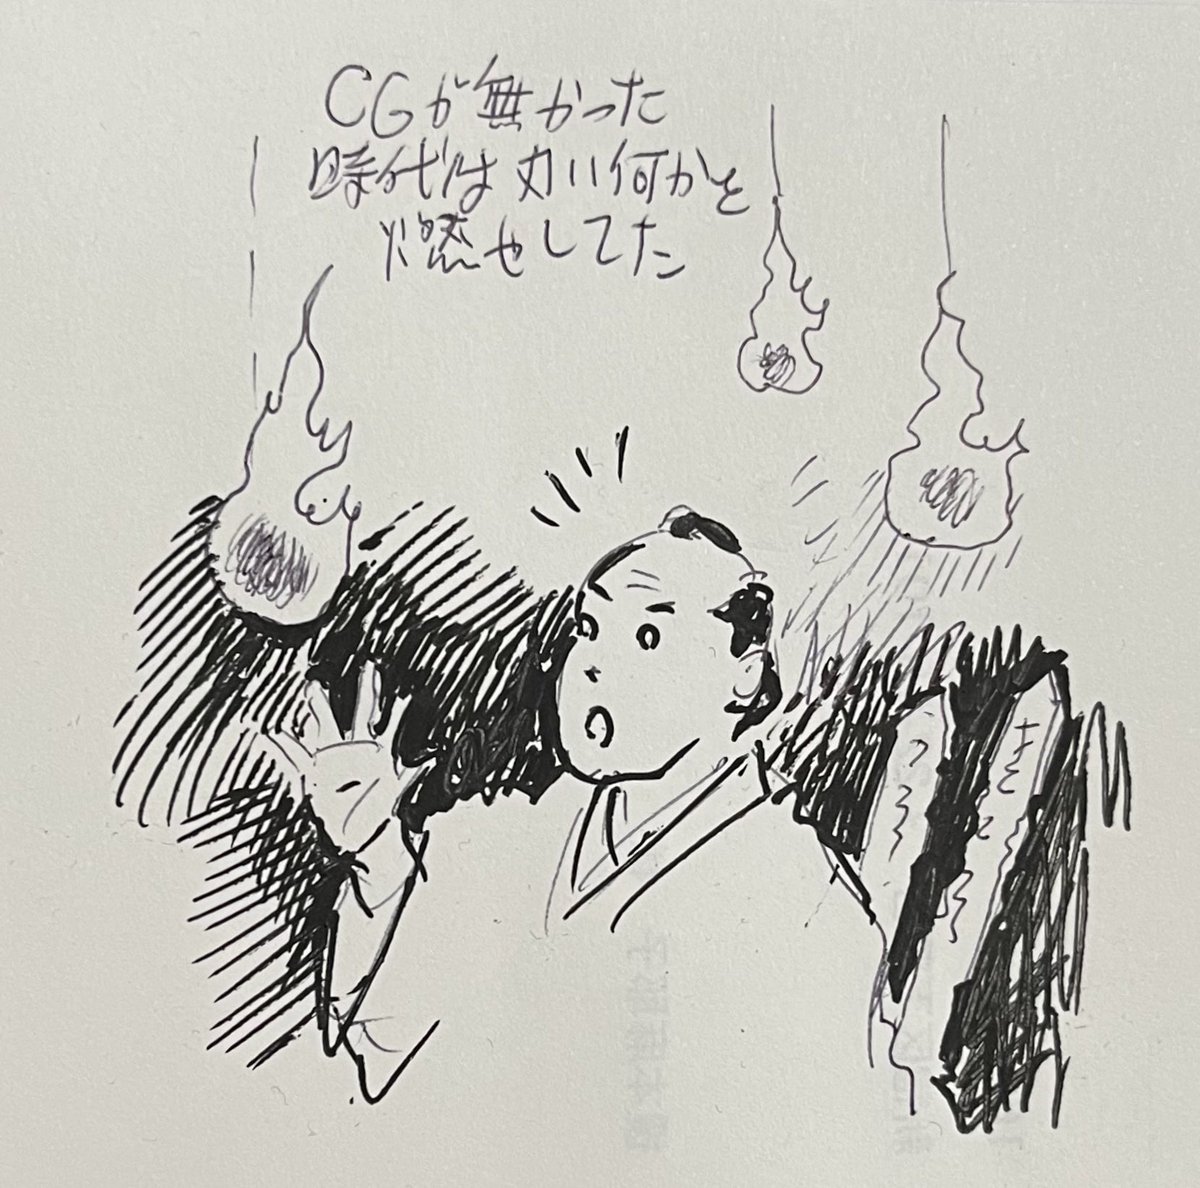 CGが無かった
時代は丸い何かを
燃やしてた